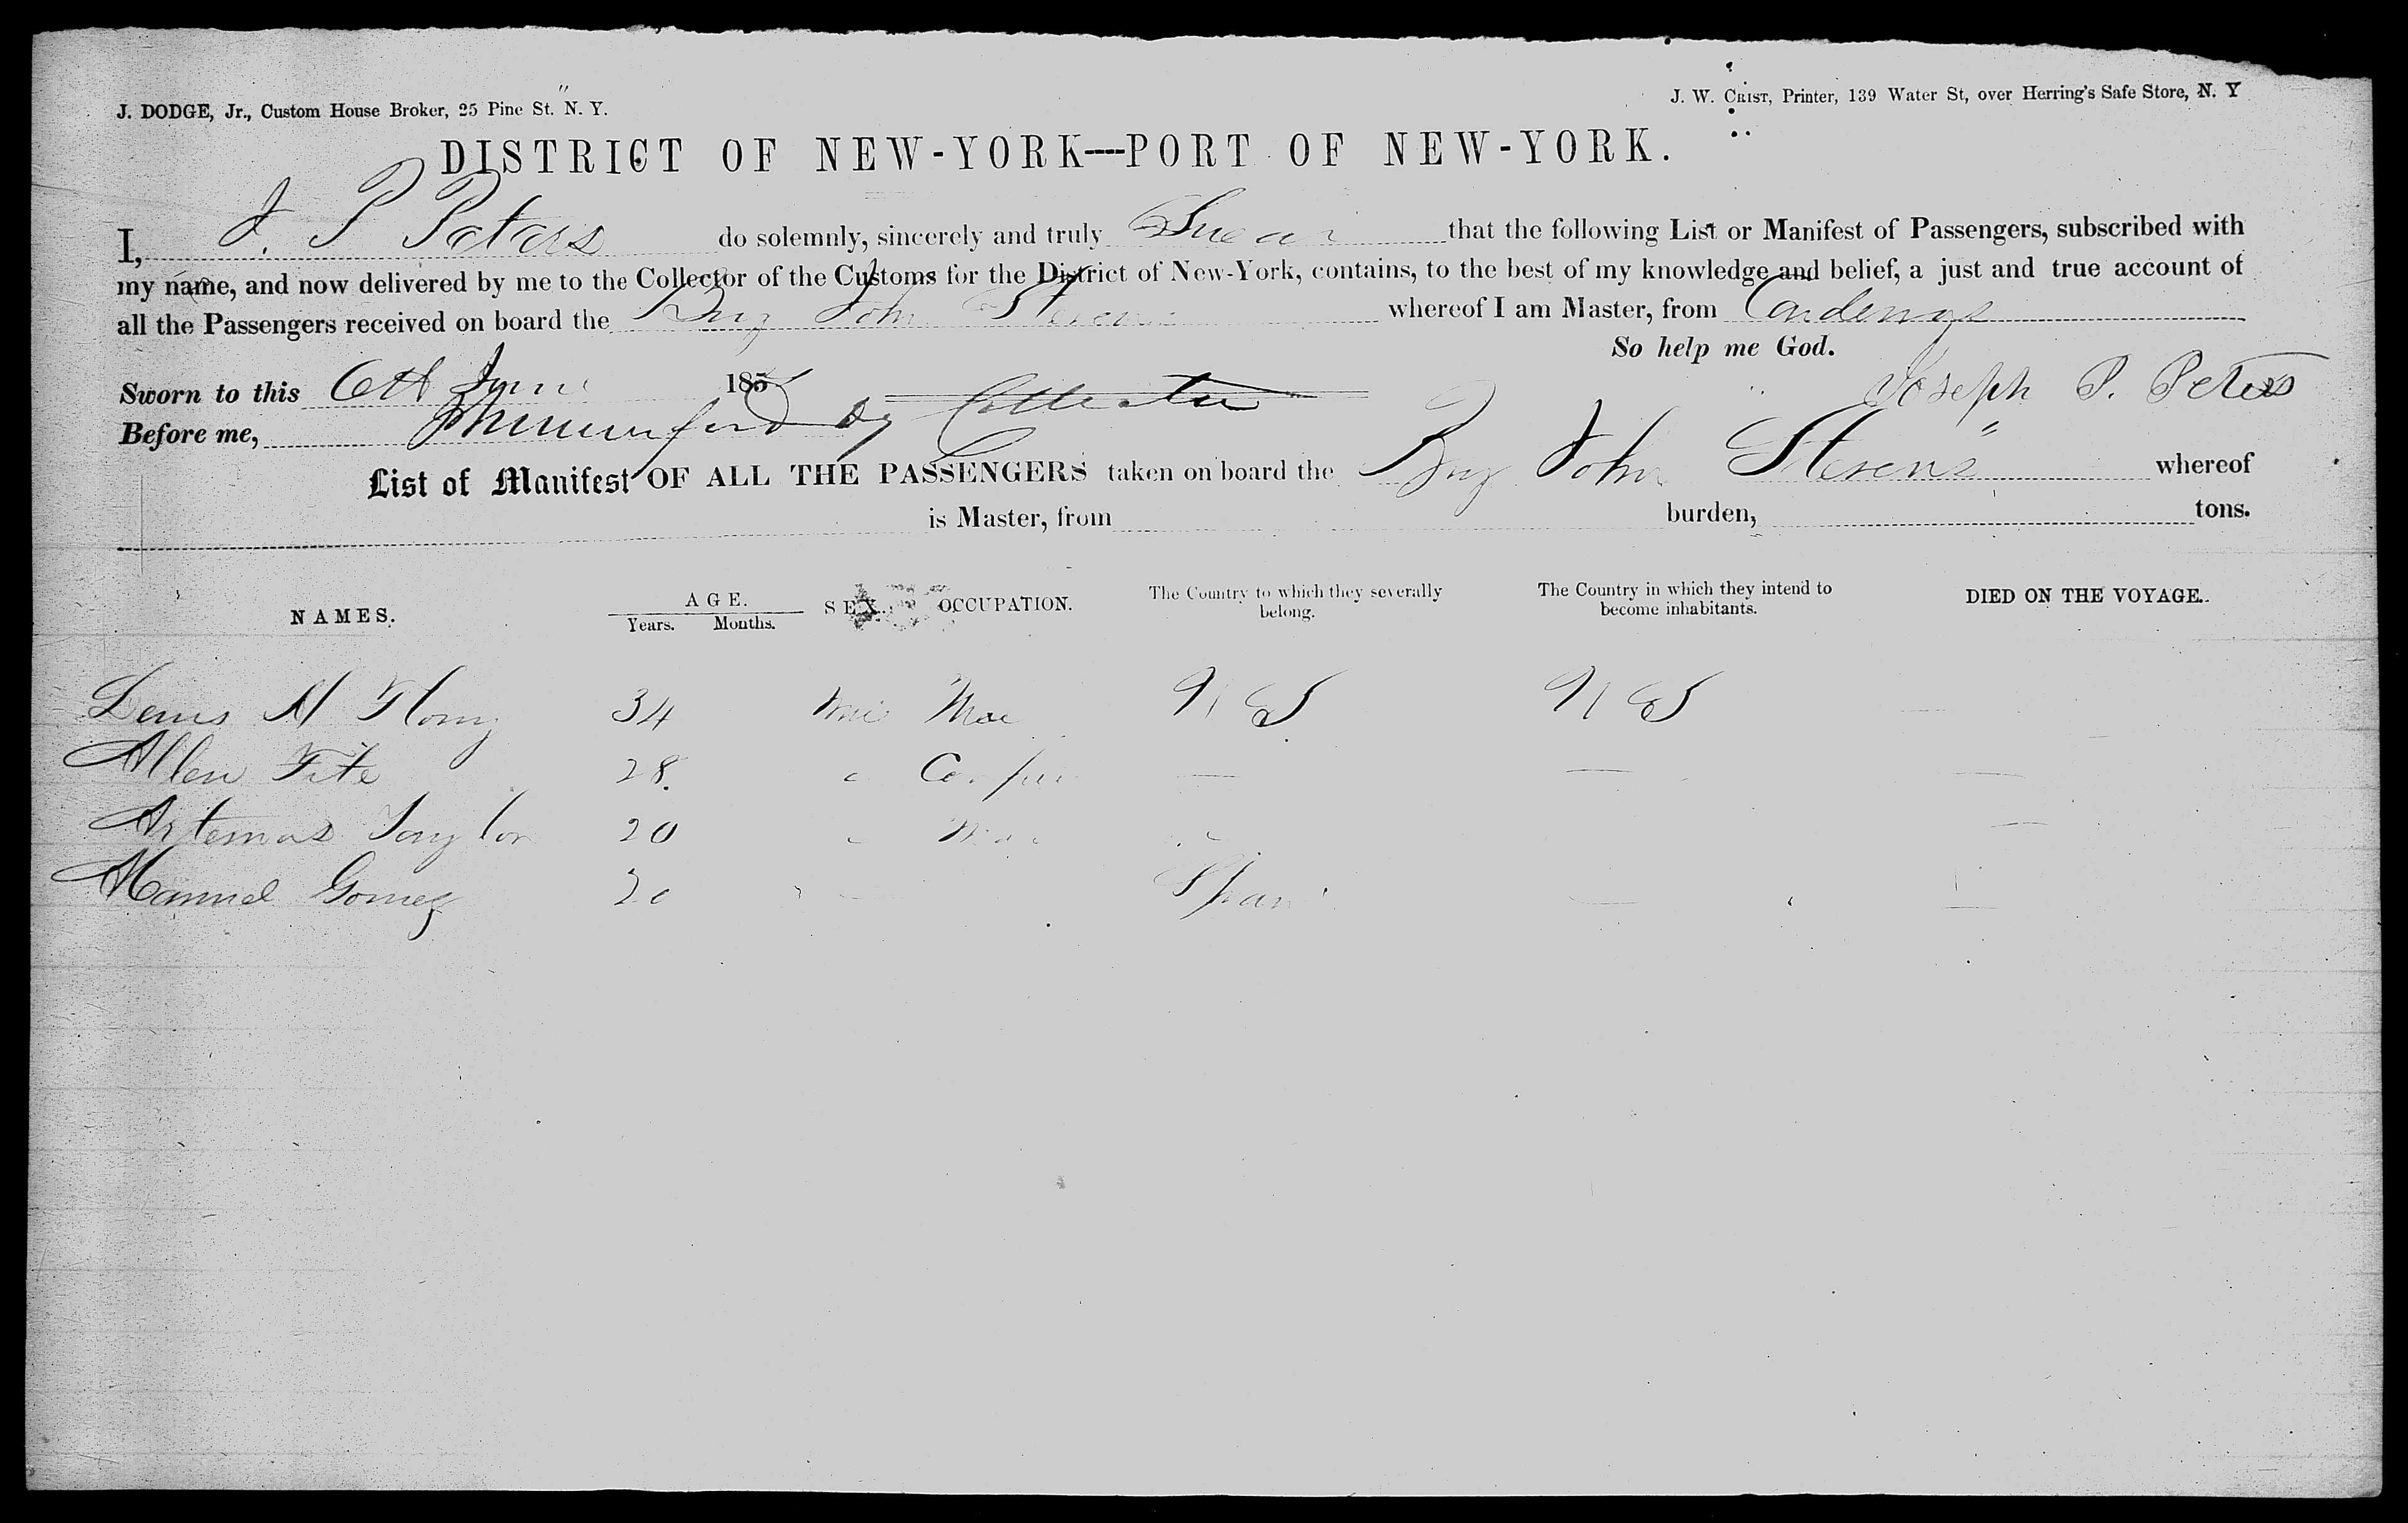 J. DODGE, Jr., Custom House Broker, 25 Pine St. N. Y.
J. W. CRIST, Printer, 139 Water St, over Herring's Safe Store, N. Y
DISTRICT OF NEW-YORK—PORT OF NEW-YORK.
I, J. P Peters do solemnly, sincerely and truly Swear that the following List or Manifest of Passengers, subscribed with
my name, and now delivered by me to the Collector of the Customs for the District of New-York, contains, to the best of my knowledge and belief, a just and true account of
all the Passengers received on board the Brig John Stevens whereof I am Master, from Cardenas
So help me God.
Sworn to this 6th June 185
Joseph P. Peters
Before me,
List of Manifest OF ALL THE PASSENGERS taken on board the Brig John Stevens whereof
is Master, from burden, tons.
NAMES. AGE. Years. Months. SEX. OCCUPATION. The Country to which they severally belong. The Country in which they intend to become inhabitants. DIED ON THE VOYAGE.
M 34 U S U S
Allen Fite 28.
Artemas Taylor 20
Manuel Gomez 20 Spain